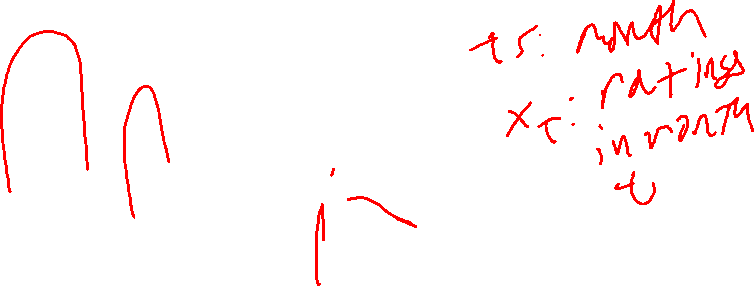 t5: month
x_t: ratings
in month
t